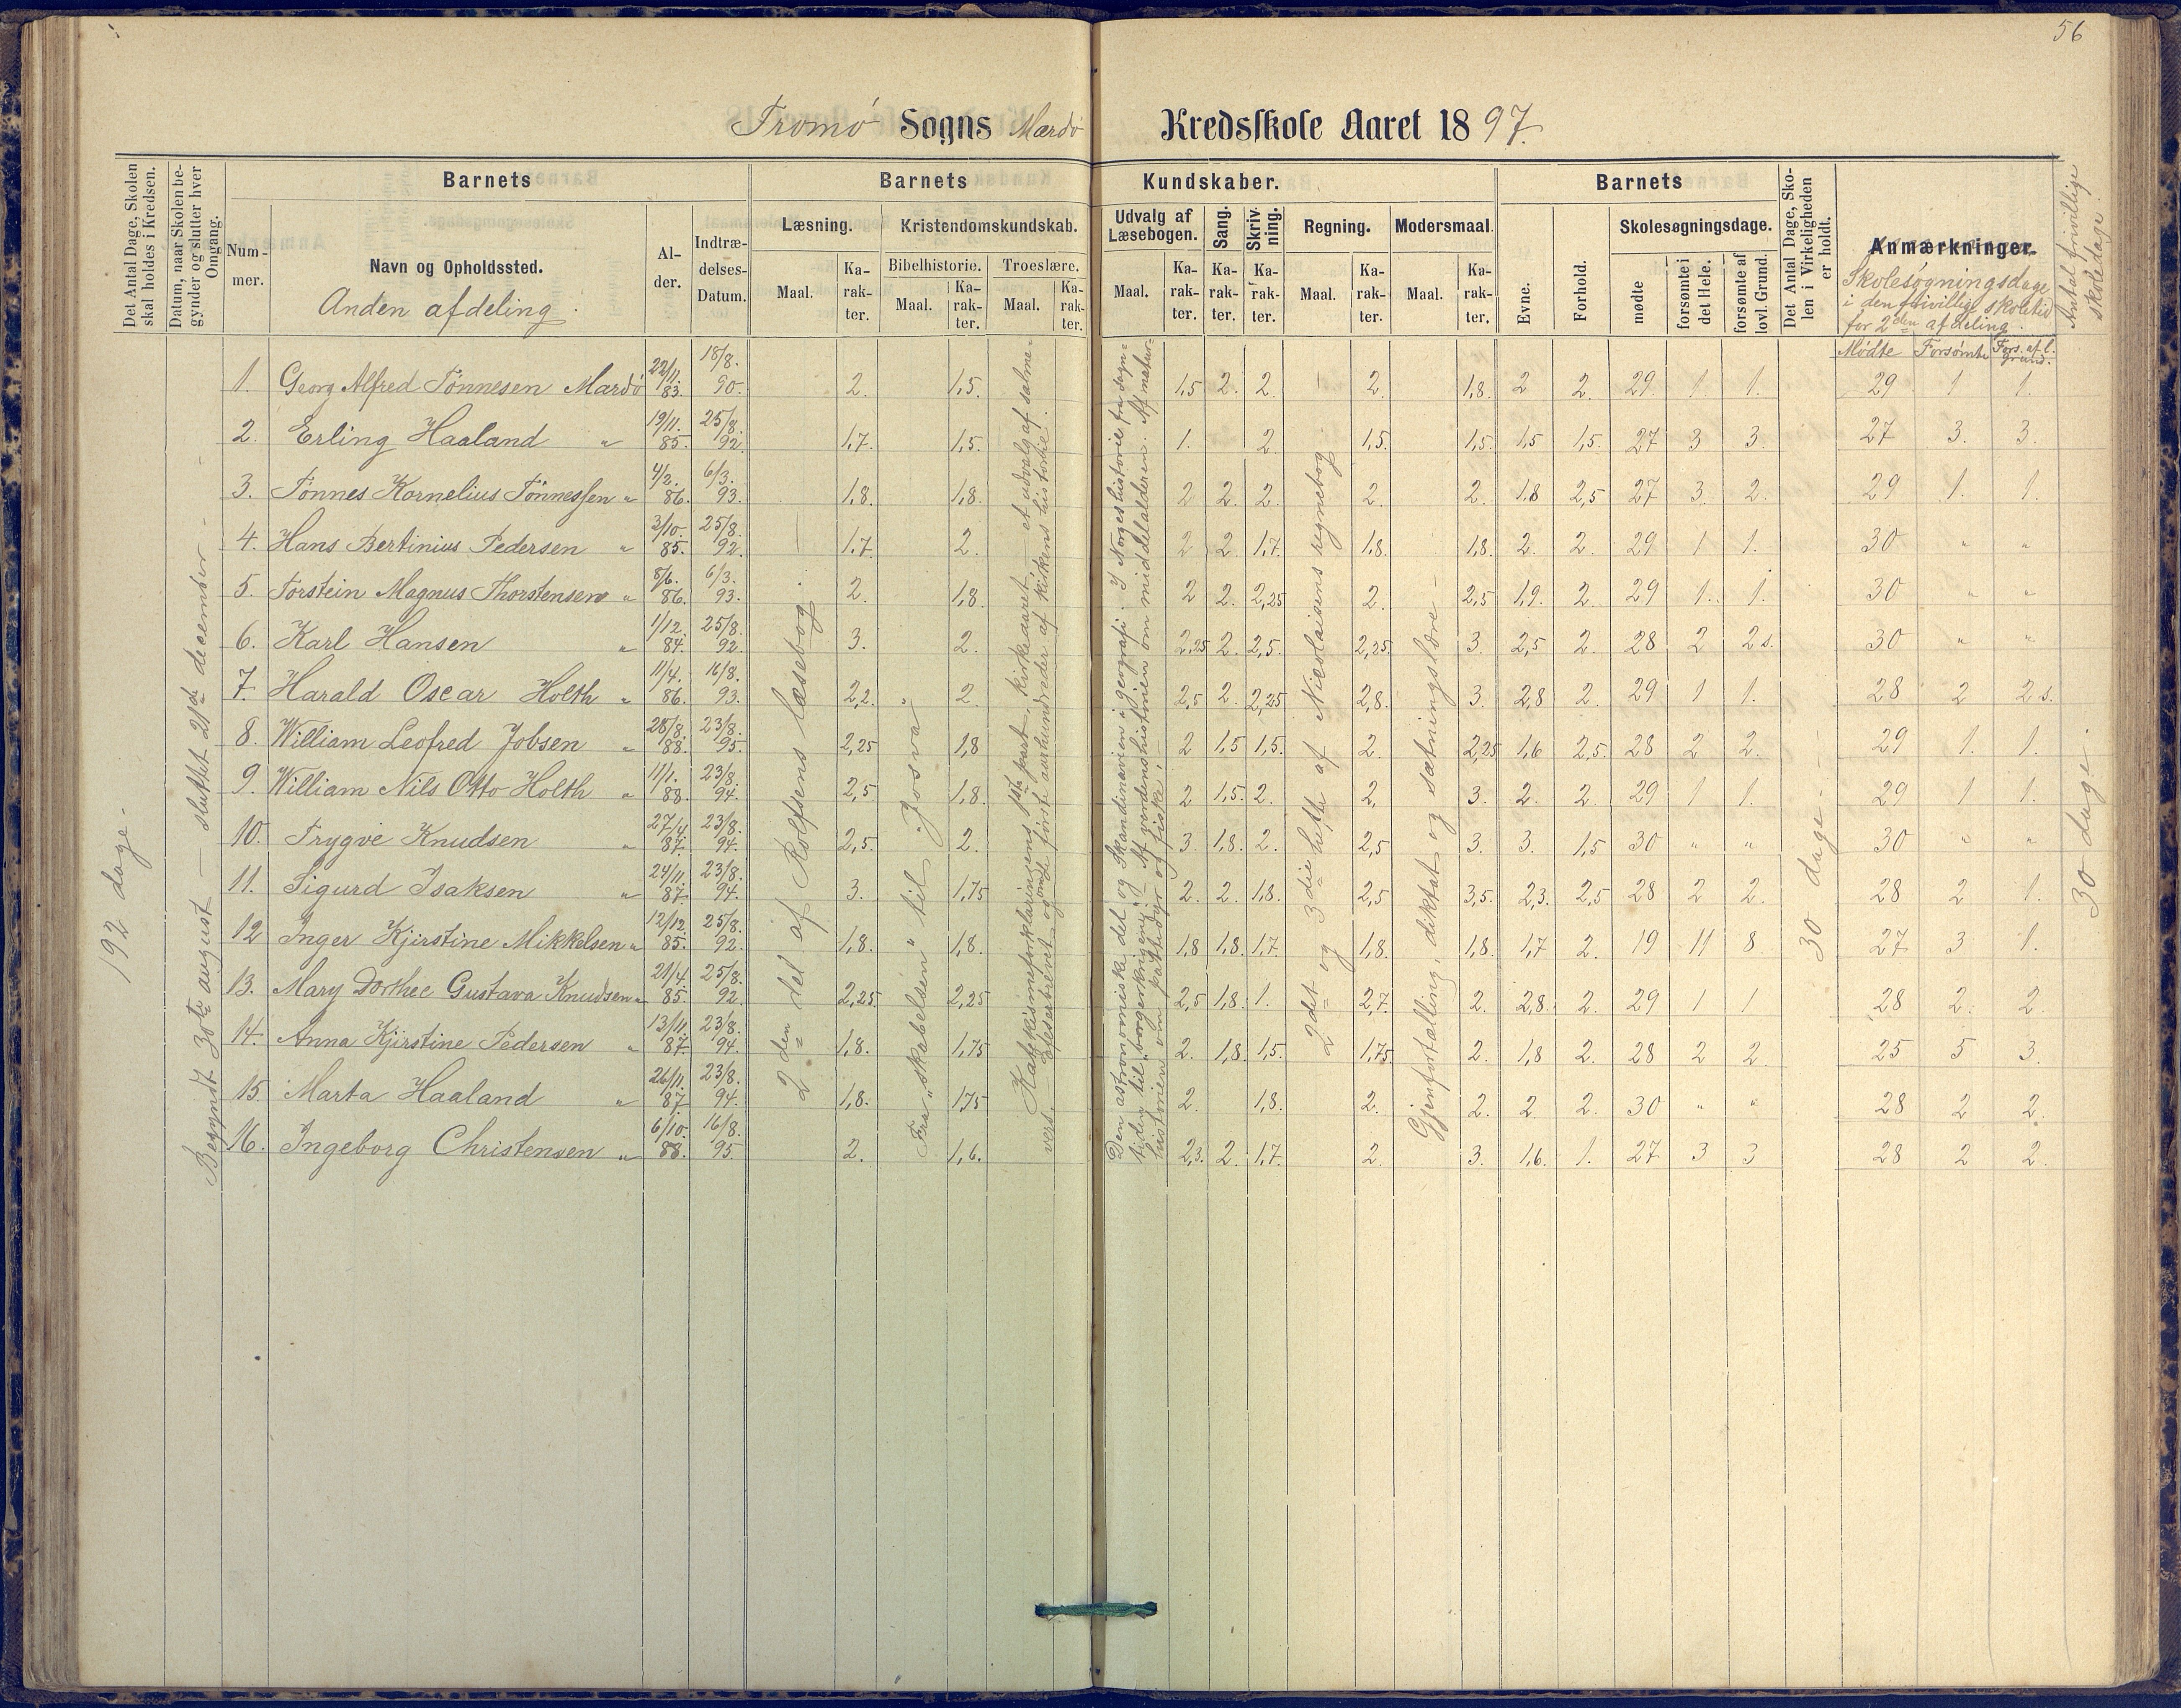 56
Tromø Sogns Mærdø Kredsskole Aaret 1897.
Det Antal Dage, Skolen skal holdes i Kredsen.
Datum, naar Skolen begynder og slutter hver Omgang.
Barnets
Barnets Kundskaber.
Barnets
Det Antal Dage, Skolen i Virkeligheden er holdt.
Anmærkninger.
Antal frivillige skoledage.
Nummer.
Navn og Opholdssted.
Alder.
Indtrædelses-Datum.
Læsning.
Kristendomskundskab.
Udvalg af Læsebogen.
Sang.
Skrivning.
Regning.
Modersmaal.
Evne.
Forhold.
Skolesøgningsdage.
Bibelhistorie. Troeslære.
Maal. Karakter. Maal. Karakter. Maal. Karakter. Maal. Karakter. Karakter. Karakter. Maal. Karakter. Maal. Karakter.
mødte
forsømte i det Hele.
forsømte af lovl. Grund.
Anden afdeling.
Skolesøgningsdage
i den frivillige skoletid
for 2den afdeling.
Mødte Forsømte Fors. af l. grund.
1. Georg Alfred Tønnesen Mærdø 22/11. 83. 18/8. 90. 2. 1,5. 1,5 2. 2. 2. 1,8. 2 2. 29. 1 1. 29 1 1.
2. Erling Haaland " 19/11. 85. 25/8. 92. 1,7. 1,5. 1. 2. 1,5. 1,5. 1,5 1,5. 27 3 3. 27 3. 3.
3. Tønnes Kornelius Tønnessen " 4/2. 86. 6/3. 93. 1,8. 1,8. 2 2. 2. 2. 2. 1,8 2,5 27 3. 2. 29 1. 1.
4. Hans Bertinius Pedersen " 3/10. 85. 25/8. 92. 1,7. 2. 2 2. 1,7. 1,8. 1,8. 2. 2. 29 1 1. 30 " "
5. Torstein Magnus Thorstensen " 8/6. 86. 6/3. 93. 2. 1,8. 2 2. 2,25 2. 2,5 1,9. 2. 29 1. 1. 30 " "
6. Karl Hansen " 1/12. 84. 25/8. 92. 3. 2. 2,25 2. 2,5. 2,25. 3. 2,5 2. 28 2 2 s. 30 " "
7. Harald Oscar Holth " 11/4. 86. 16/8. 93. 2,2. 2. 2,5 2. 2,25 2,8. 3. 2,8 2. 29 1 1. 28 2 2 s.
8. William Leofred Jobsen " 28/8. 88. 23/8. 95. 2,25 1,8 2 1,5 1,5. 2. 2,25 1,6 2,5. 28 2 2. 29 1. 1.
9. William Nils Otto Holth " 11/1. 88. 23/8. 94. 2,5 1,8. 2 1,5. 2. 2. 3. 2. 2. 29 1 1. 29 1 1.
10. Trygve Knudsen " 27/4. 87. 23/8. 94. 2,5. 2. 3. 1,8. 2. 2,5 3. 3. 1,5 30 " " 30 " "
11. Sigurd Isaksen " 24/11. 87. 23/8. 94. 3. 1,75 2. 2. 1,8. 2,5 3,5. 2,3. 2,5 28 2 2. 28 2 1.
12 Inger Kjirstine Mikkelsen " 12/12. 85. 25/8. 92. 1,8. 1,8. 1,8 1,8. 1,7. 1,8. 1,8. 1,7 2. 19 11 8. 27 3 1.
13. Mary Dorthee Gustava Knudsen " 21/4. 85. 25/8. 92. 2,25. 2,25 2,5 1,8. 1. 2,7. 2. 2,8. 2. 29 1 1 28 2. 2.
14. Anna Kjirstine Pedersen " 13/11. 87. 23/8. 94. 1,8. 1,75 2. 1,8. 1,5. 1,75. 2. 1,8 2. 28 2 2. 25 5 3.
15. Marta Haaland " 26/11. 87 23/8. 94. 1,8. 1,75 2. 1,8. 2. 2. 2. 2. 30 " " 28 2 2.
16. Ingeborg Christensen " 6/10. 88. 16/8. 95. 2. 1,6. 2,3. 2. 1,7. 2. 3. 1,6. 1. 27 3 3 28 2 2.
192 dage.
Begyndt 30te august – sluttet 21de december –
2den del af Rolfsens læsebog
Fra "skabelsen" til "Josva"
Katekismeforklaringens 1ste part. Kirkeaaret – et udvalg af salmevers. – Afleseskrevet og om de første aarhundreder af kirkens historie.
Den astronomiske del og Skandinavien i geografi. I Norges historie fra sagntiden til "borgerkrigene". Af verdenshistorien om middelalderen. Af naturhistorien om pattedyr og fiske.
2det og 3die hefte af Nicolaisens regnebog
Gjenfortælling, diktat og sætningslære –
30 dage –
30 dage.